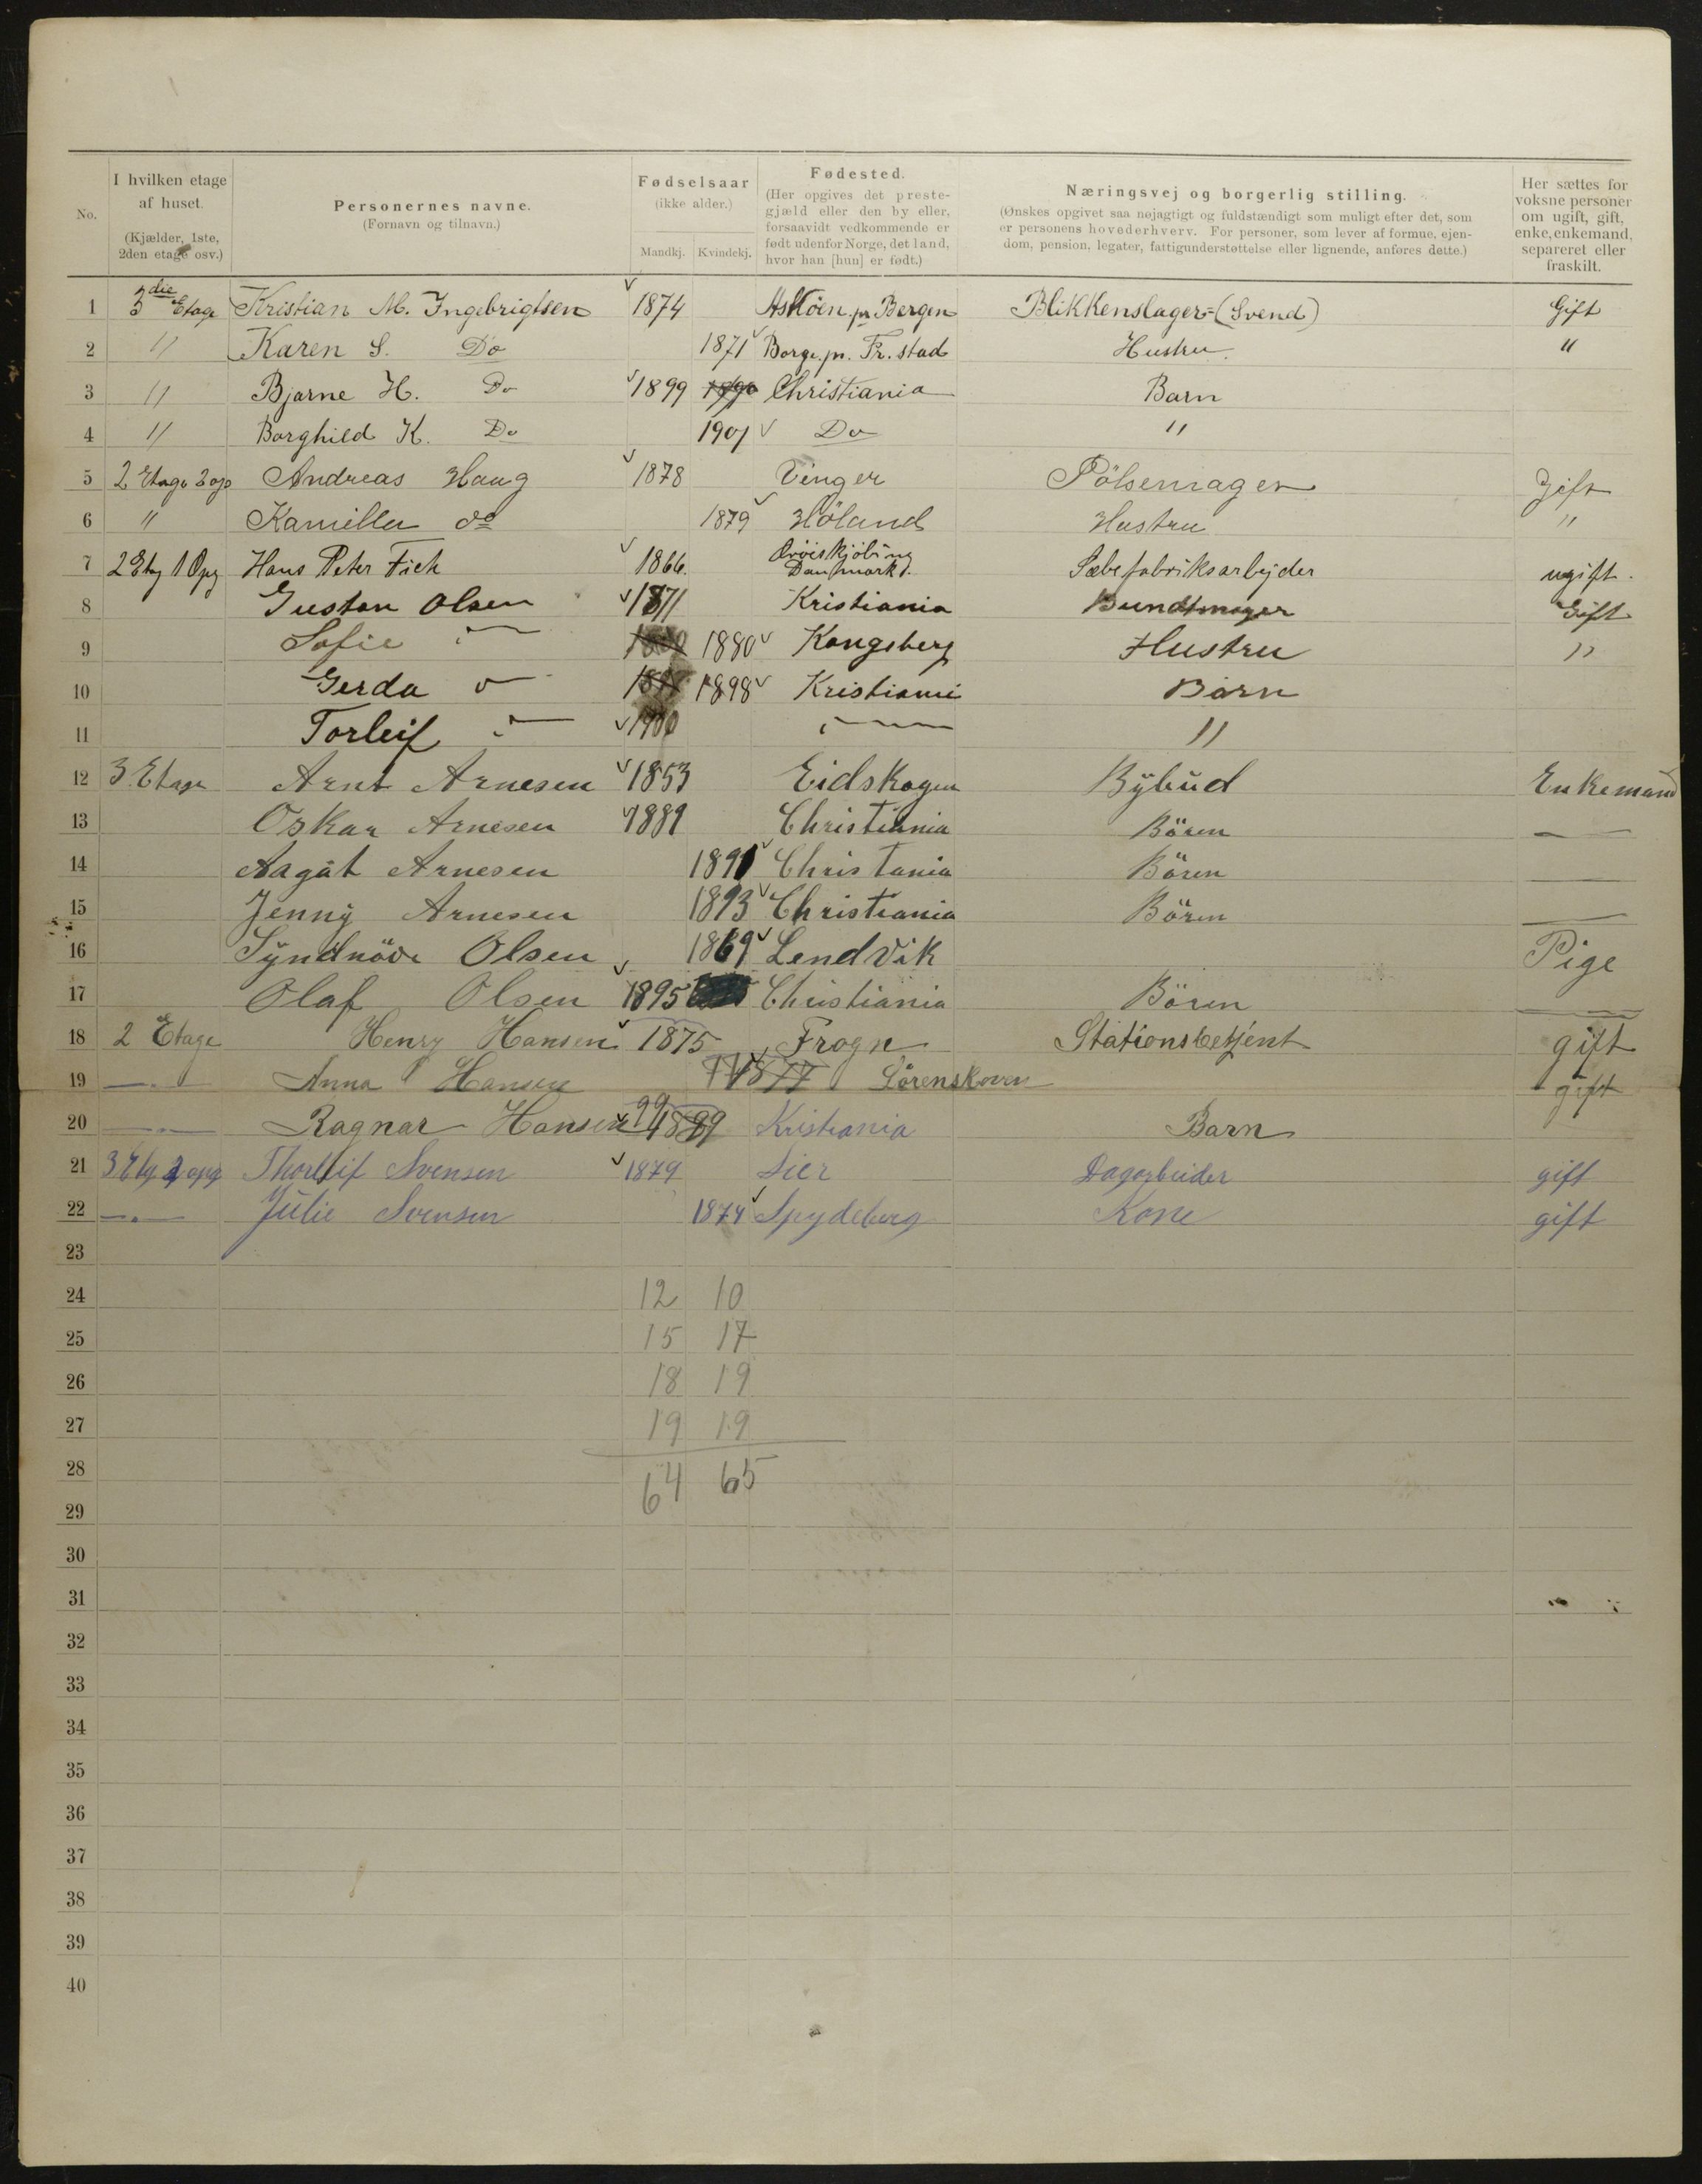 No.
I hvilken etage
af huset.
(Kjælder, 1ste,
2den etage osv.)
Personernes navne.
(Fornavn og tilnavn.)
Fødselsaar
(ikke alder.)
Mandkj. Kvindekj.
Fødested.
(Her opgives det preste-
gjæld eller den by eller,
forsaavidt vedkommende er
født udenfor Norge, det land,
hvor han [hun] er født.)
Næringsvej og borgerlig stilling.
(Ønskes opgivet saa nøjagtigt og fuldstændigt som muligt efter det, som
er personens hovederhverv. For personer, som lever af formue, ejen-
dom, pension, legater, fattigunderstøttelse eller lignende, anføres dette.)
Her sættes for
voksne personer
om ugift, gift,
enke, enkemand,
separeret eller
fraskilt.
1 3die Etage Kristian M. Ingebrigtsen 1874 Asköen pr Bergen Blikkenslager-(Svend) Gift
2 " Karen S. Do 1871 Borge pr. Fr. stad Hustru. "
3 " Bjarne H. Do 1899 Christiania Barn
4 " Borghild K. Do 1901 Do "
5 2 Etage 2 op Andreas Haug 1878 Vinger Pölsemager Gift
6 " Kamilla do 1879 Höland Hustru "
7 2 Etg 1 Opg Hans Peter Fich 1866. Danmark. Sæbefabriksarbejder ugift.
8 Gustav Olsen 1871 Kristiania Bundtmager Gift
9 Sofie 1880 Kongsberg Hustru "
10 Gerda 1898 Kristiani Barn
11 Torleif 1900 "
12 3 Etage Arnt Arnesen 1853 Eidskogen Bybud Enkemand
13 Oskar Arnesen 1889 Christiania Bören —
14 Aagåt Arnesen 1891 Christania Bören —
15 Jenny Arnesen 1893 Christiania Bören —
16 Syndnöve Olsen 1869 Lendvik Pige
17 Olaf Olsen 1895 Christiania Bören —
18 2 Etage Henry Hansen 1875 Frogn Stationsbetjent gift
19 —"— Anna Hansen 1877 Sörenskoven gift
20 —"— Ragnar Hansen 99 1899 Kristiania Barn
21 3 Etg 2 opg Thorleif Svensen 1879 Lier Dagarbeider gift
22 —"— Julie Svensen 1874 Spydeberg Kone gift
23
24 12 10
25 15 17
26 18 19
27 19 19
28 64 65
29
30
31
32
33
34
35
36
37
38
39
40